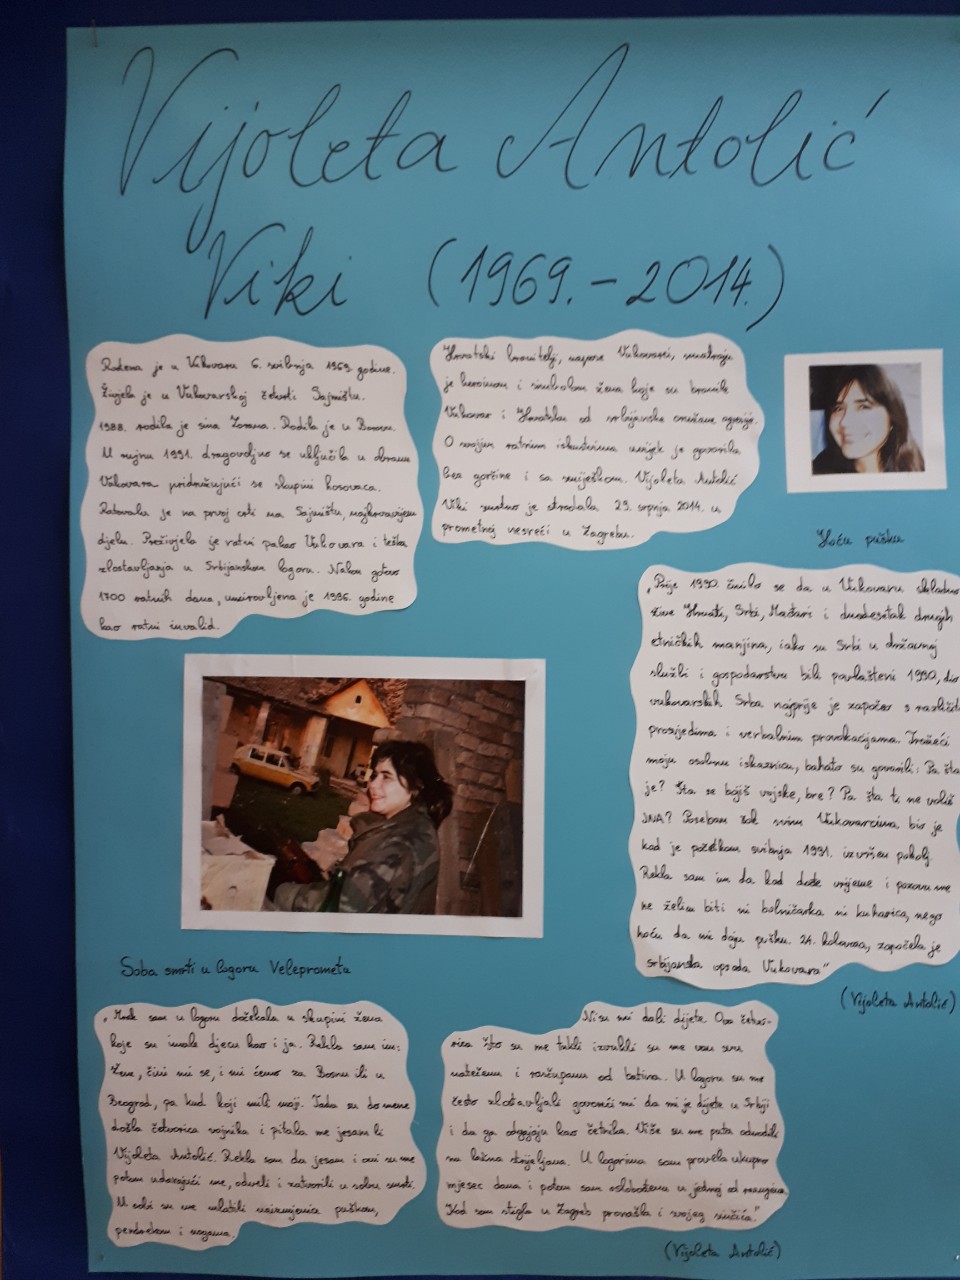 Vijoleta Antolić
Viki (1969. - 2014.)
Rođena je u Vukovaru 6. svibnja 1969. godine.
Živjela je u Vukovarskoj četvrti Sajmištu.
1988. rodila je sina Zorana. Radila je u Borovu.
U rujnu 1991. dragovoljno se uključila u obranu
Vukovara pridružujući se skupini kosovaca.
Ratovala je na prvoj crti na Sajmištu, najkrvavijem
djelu. Preživjela je ratni pakao Vukovara i teška
zlostavljanja u Srbijanskom logoru. Nakon gotovo
1700 ratnih dana, umirovljena je 1996. godine
kao ratni invalid.
Hrvatski branitelji, napose Vukovarci, smatraju
je heroinom i simbolom žena koje su branile
Vukovar i Hrvatsku od srbijanske oružane agresije.
O svojim ratnim iskustvima uvijek je govorila
bez gorčine i sa smiješkom. Vijoleta Antolić
Viki sretno je stradala 29. srpnja 2014. u
prometnoj nesreći u Zagrebu.
Hoću pušku
„Prije 1990. činilo se da u Vukovaru skladno
žive Hrvati, Srbi, Mađari i dvadesetak drugih
etničkih manjina, iako su Srbi u državnoj
službi i gospodarstvu bili povlašteni 1990, dio
vukovarskih Srba najprije je započeo s različit
prosjedima i verbalnim provokacijama. Tražeći
moju osobnu iskaznicu, bahato su govorili: Pa šta
je? Šta se bojiš vojske, bre? Pa šta ti ne voliš
JNA? Poseban šok svim Vukovarcima bio je
kad je početkom svibnja 1991. izvršen pokolj.
Rekla sam im da kad dođe vrijeme i pozovu me
ne želim biti ni bolničarka ni kuharica, nego
hoću da mi daju pušku. 24. kolovoza, započela je
srbijanska opsada Vukovara"
(Vijoleta Antolić)
Soba smrti u logoru Veleprometa
„Mrak sam u logoru dočekala u skupini žena
koje su imale djecu kao i ja. Rekla sam im:
Žene, čini mi se, i mi ćemo za Bosnu ili u
Beograd, pa kud koji mili moji. Tada su do mene
došla četvorica vojnika i pitala me jesam li
Vijoleta Antolić. Rekla sam da jesam i oni su me
potom udarajući me, odveli i zatvorili u sobu smrti.
U sobi su me mlatili naizmjenice puškom,
pendrekom i nogama.
Nisu mi dali dijete. Ova četvo-
rica što su me tukli izvukli su me van svu
natečenu i raščupanu od batina. U logoru su me
često zlostavljali govoreći mi da mi je dijete u Srbiji
i da ga odgajaju kao četnika. Više su me puta odvodili
na lažna strijeljana. U logorima sam provela ukupno
mjesec dana i potom sam oslobođena u jednoj od razmjena.
Kad sam stigla u Zagreb pronašla i svojeg sinčića."
(Vijoleta Antolić)